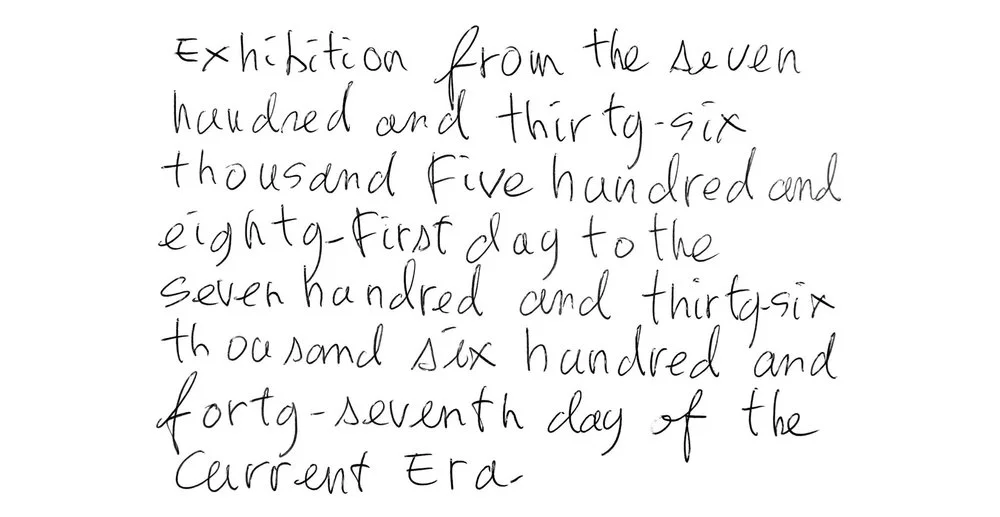 Exhibition from the seven
hundred and thirty-six
thousand Five hundred and
eighty-First day to the
seven hundred and thirty-six
thousand six hundred and
forty-seventh day of the
Current Era.